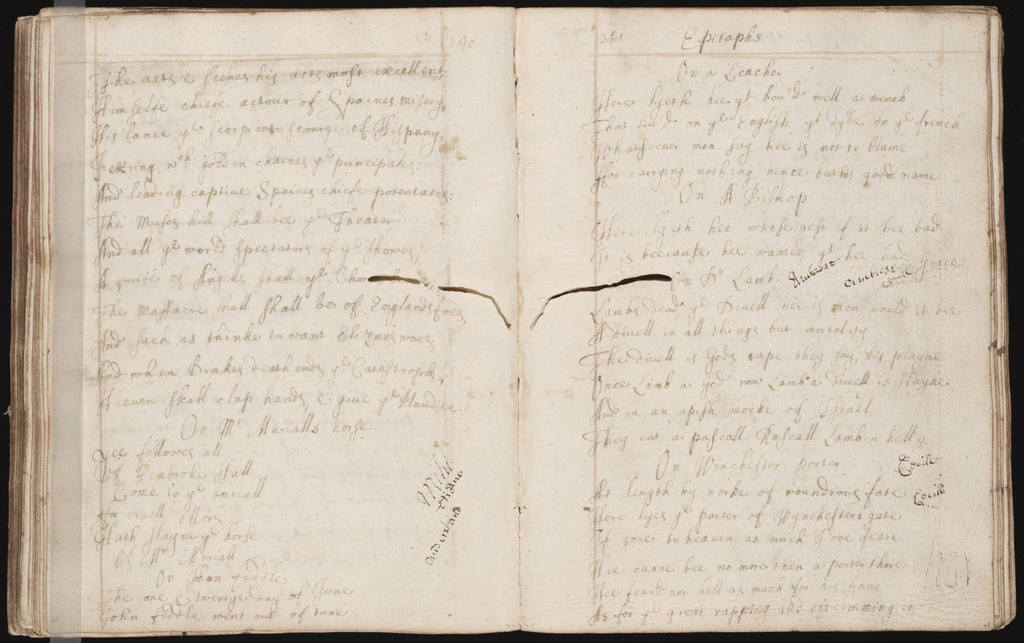 The acts & scenes his acts most excellent
Himselfe chiefe actour of Spaines misery
His lance ye scorpians scourge of Hispany
wth golden chaines ye principates:
And leading captive Spaines chiefe potentates:
The Muses hill shall bee ye Theater
And all ye world spectators of ye showes,
A quire of Angels shall ye
The Massacre shall shall be of Englands foes,
And such as thinke to want Elizaes woes,
And when Drakes death ends ye Catastrophe,
Heaven shall clap hands, & give ye Plaudite.
On Mr Marialls horse.
Yee followes all
Of Pembrok Hall
Come to ye buriall
For cruell Mors
Hath slayne ye horse
Of Mr Mariall
On John Fiddle
The one & twentye day of June
John Fiddle went out of tune.
and
241 Epitaphs
On a Leacher
Here lyeth hee yt lou'd well a wench
That liu'd on ye English yt dyde on ye french
Whatsoever men say hee is not to blame
For carrying nothing hence but his good name
On A Bishop
Here lyeth hee whose rest if it bee bad
It is beecause hee wanted yt hee had
On Dr Lamb.
grace
Lambs dead ye Divell hee is whon would it bee
A divell in all things but mortality
The divell is Gods rape they say, his plague
Once Lamb a god now Lamb a divell is slayne
And in an apish mocke of Israel
They eat a paschall Rascall Lamb in hell
On Winchester porter
At length by worke of woundrous fate
Here lyes ye porter of Wynchesters gate
If gone to heaven as much I doe feare
Hee canne bee no more then a porter there
Hee feard not hell as much for his sinne
As for ye great rapping & oft comming in